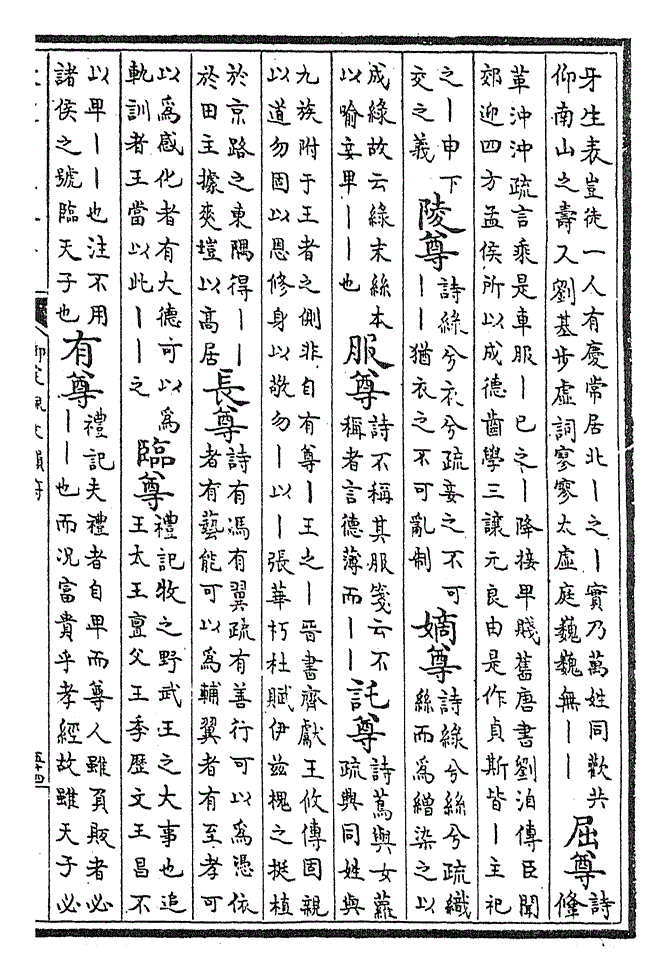 牙生表豈徒一人有慶常居北丨之丨實乃萬姓同歡共
仰南山之壽又劉基步虛詞寥寥太虛庭巍巍無丨丨
屈尊詩鞗
革沖沖疏言乘是車服丨已之丨降接卑賤舊唐書劉洎傳臣聞
郊迎四方孟侯所以成德齒學三讓元良由是作貞斯皆丨主祀
之丨申下
交之義
陵尊
詩綠兮衣兮疏妾之不可
丨丨猶衣之不可亂制
嫡尊
詩綠兮絲兮疏織
絲而為繒染之以
成綠故云綠末絲本
以喻妾卑丨丨也
服尊
詩不稱其服箋云不
稱者言德薄而丨丨
託尊
詩蔦與女蘿
疏興同姓與
九族附于王者之側非自有尊丨王之丨晉書齊獻王攸傳固親
以道勿固以恩修身以敬勿丨以丨張華朽杜賦伊茲槐之挺植
於京路之東隅得丨丨
於田主據爽塏以高居
長尊
詩有馮有翼疏有善行可以為憑依
者有藝能可以為輔翼者有至孝可
以為感化者有大德可以為
軌訓者王當以此丨丨之
臨尊
禮記牧之野武王之大事也追
王太王亶父王季歷文王昌不
以卑丨丨也注不用
諸侯之號臨天子也
有尊
禮記夫禮者自卑而尊人雖負販者必
丨丨也而況富貴乎孝經故雖天子必